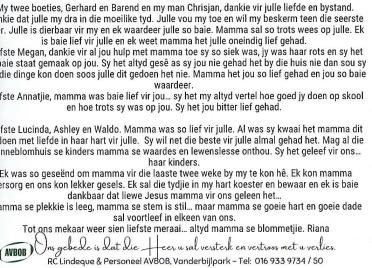 My twee boeties, Gerhard en Barend en my man Chrisjan, dankie vir julle liefde en bystand.
dankie dat julle my dra in die moeilike tyd. Julle vou my toe en wil my beskerm teen die seerste
Julle is dierbaar vir my en ek waardeer julle so baie. Mamma sal so trots wees op julle. Ek
is baie lief vir julle en ek weet mamma het julle oneindig lief gehad.
Megan, dankie vir al jou hulp met mamma toe sy so siek was, jy was haar rots en sy het
staat gemaak op jou. Sy het altyd gesê as sy jou nie gehad het by die huis nie dan sou sy
die dinge kon doen soos julle dit gedoen het nie. Mamma het jou so lief gehad en jou so baie
waardeer.
Annatjie, mamma was baie lief vir jou... sy het my altyd vertel hoe goed jy doen op skool
en hoe trots sy was op jou. Sy het jou bitter lief gehad.
Lucinda, Ashley en Waldo. Mamma was so lief vir julle. Al was sy kwaai het mamma dit
met liefde in haar hart vir julle. Sy wil net die beste vir julle almal gehad het. Mag al die
kinders so mamma se waardes en lewenslesse onthou. Sy het geleef vir ons...
haar kinders.
Ek was so geseënd om mamma vir die laaste twee weke by my te kon hê. Ek kon mamma
en ons kon lekker gesels. Ek sal die tydjie in my hart koester en bewaar en ek is baie
dankbaar dat liewe Jesus mamma vir ons geleen het...
se plekkie is leeg, mamma se stem is stil... maar mamma se goeie hart en goeie dade
sal voortleef in elkeen van ons.
Tot ons mekaar weer sien liefste meraai... altyd mamma se blommetjie. Riana
AVBOB Ons gebede is dat die Heer u sal versterk en vertroos met u verlies.
RC Lindeque & Personeel AVBOB, Vanderbijlpark – Tel: 016 933 9734 / 50